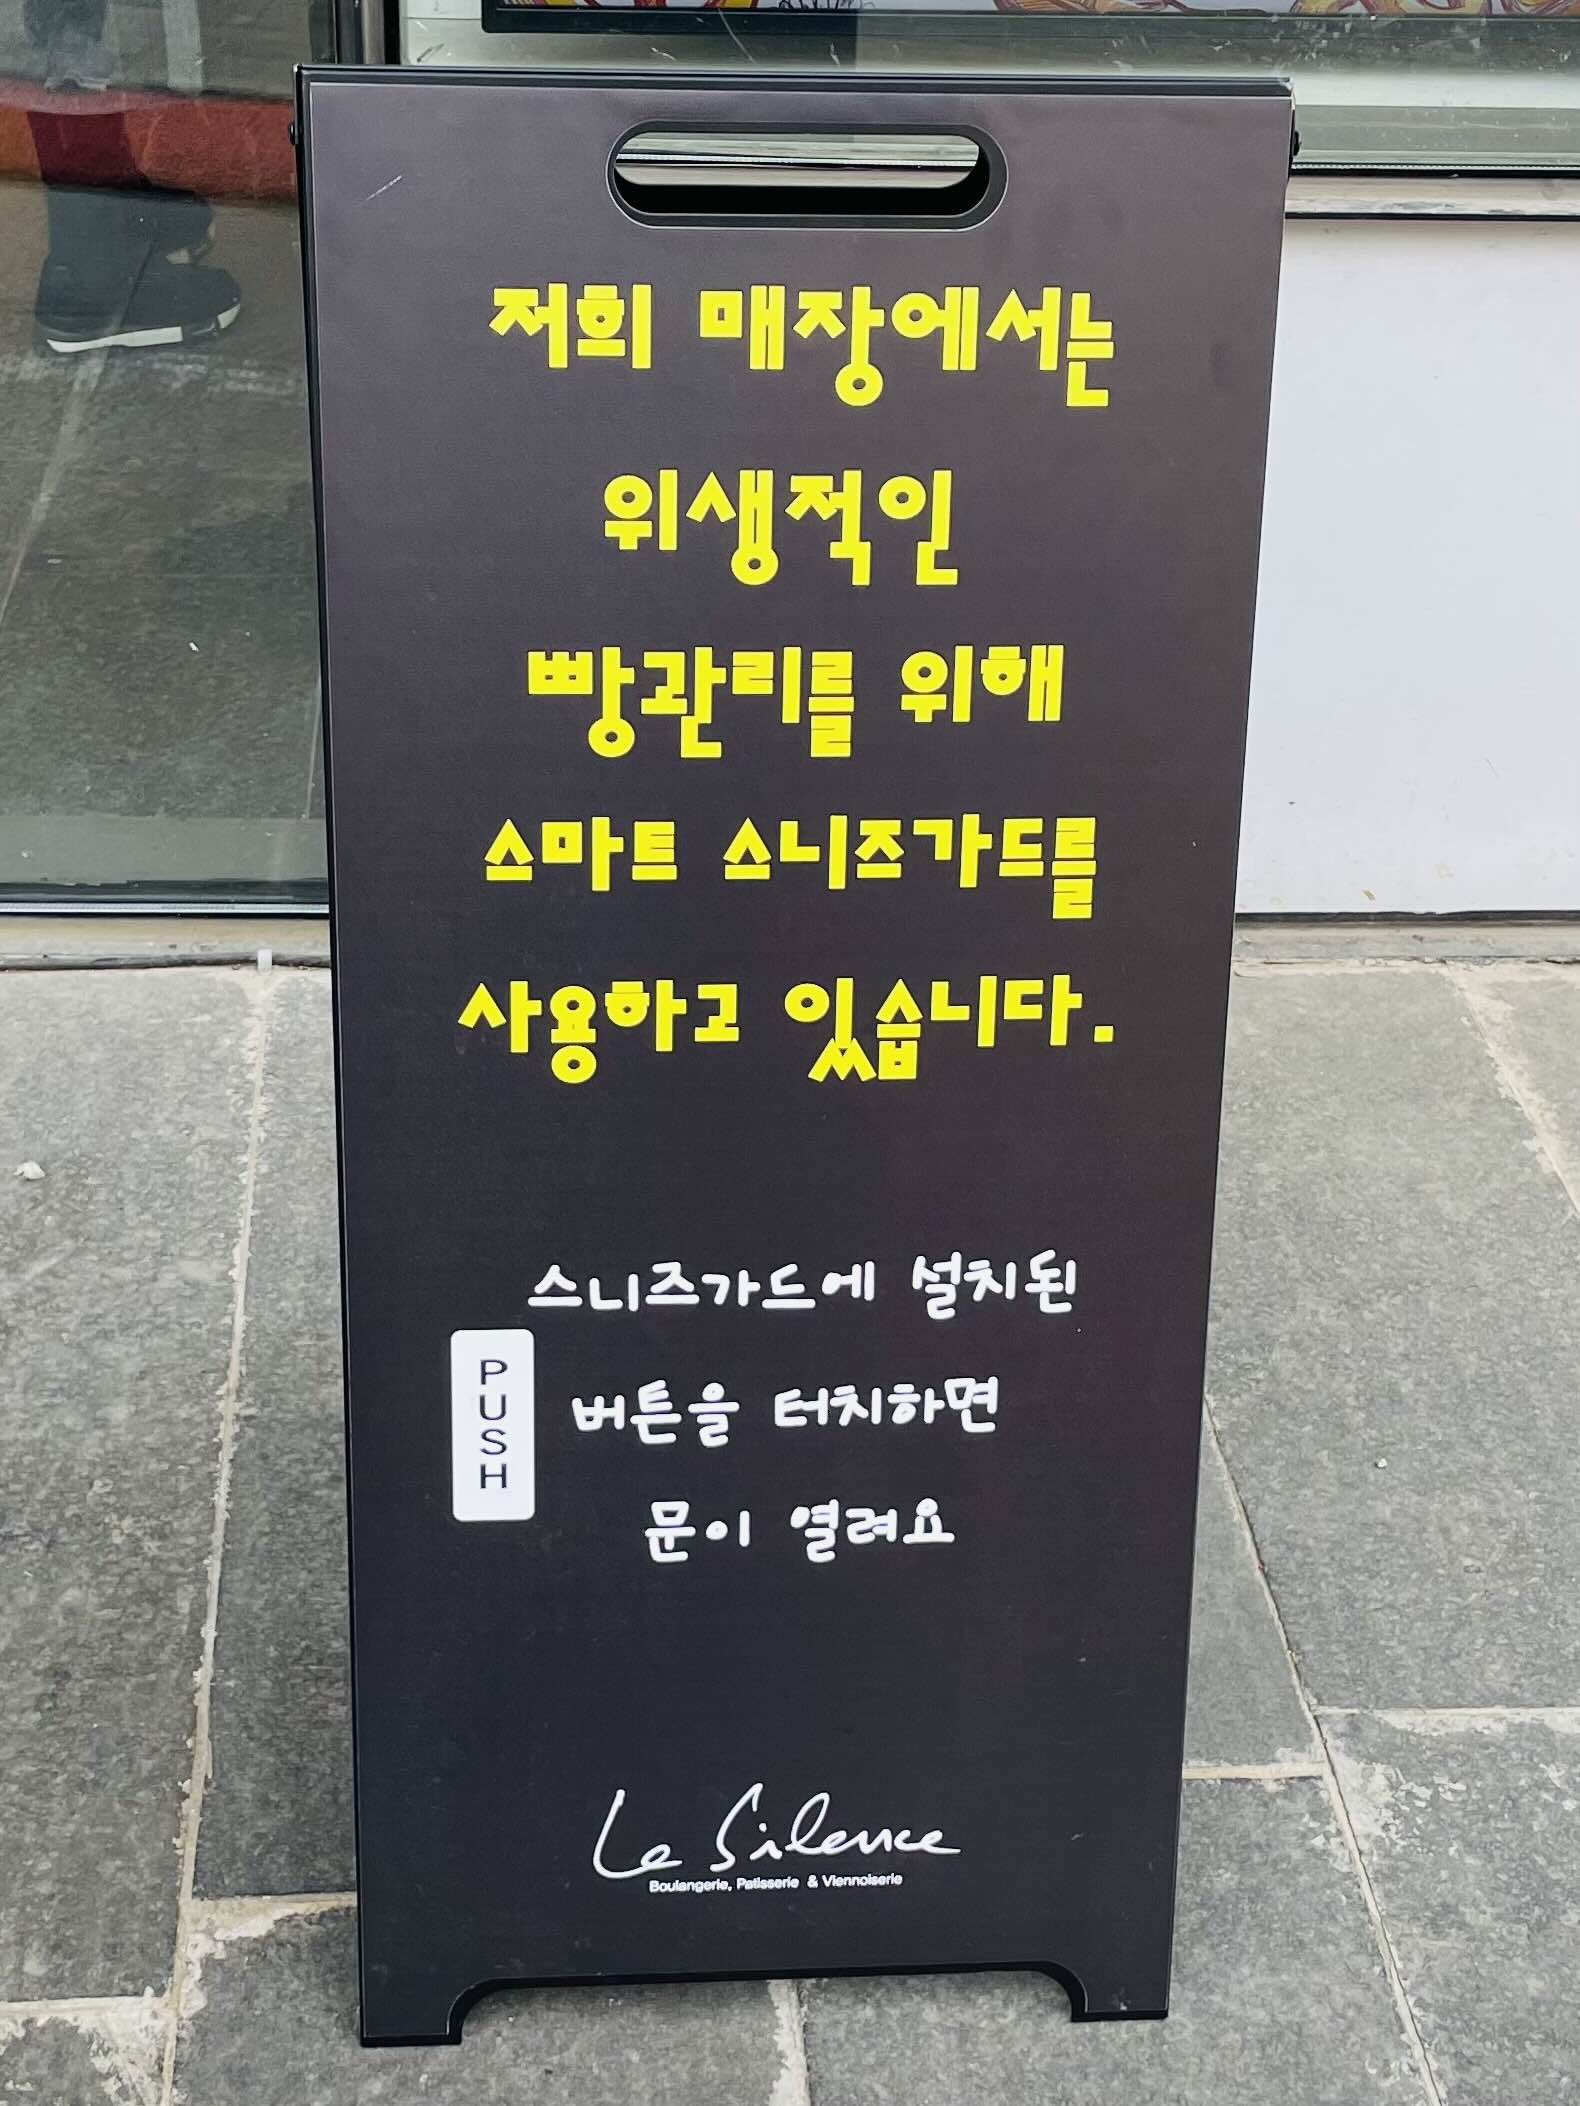 저희 매장에서는
위생적인
빵관리를 위해
스마트 스니즈가드를
사용하고 있습니다.
스니즈가드에 설치된
PUSH
버튼을 터치하면
문이 열려요
Le Silence
Boulangerie, Patisserie & Viennoiserie